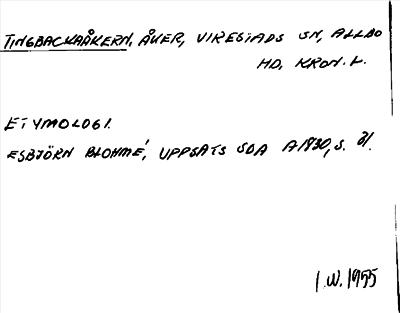 TINGBACKAÅKERN, ÅKER, VIRESTADS SN, ALLBO
HD, KRON. L.
ETYMOLOGI.
ESBJÖRN BLOHMÉ, UPPSATS SOA A1930, S.
I.W. 1955